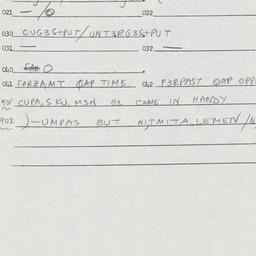 021 — /0 022
030 CUG3S+PUT/UNT3RG3S+PUT
031 — 032 —
060 0
061 FARZAMT QAP TIME 062 F3RPAST QAP OPP
901 CUPA,,S KU, M3N GL COME IN HANDY
902 )—UMPAS BUT NITMITA,,LEMEN/N